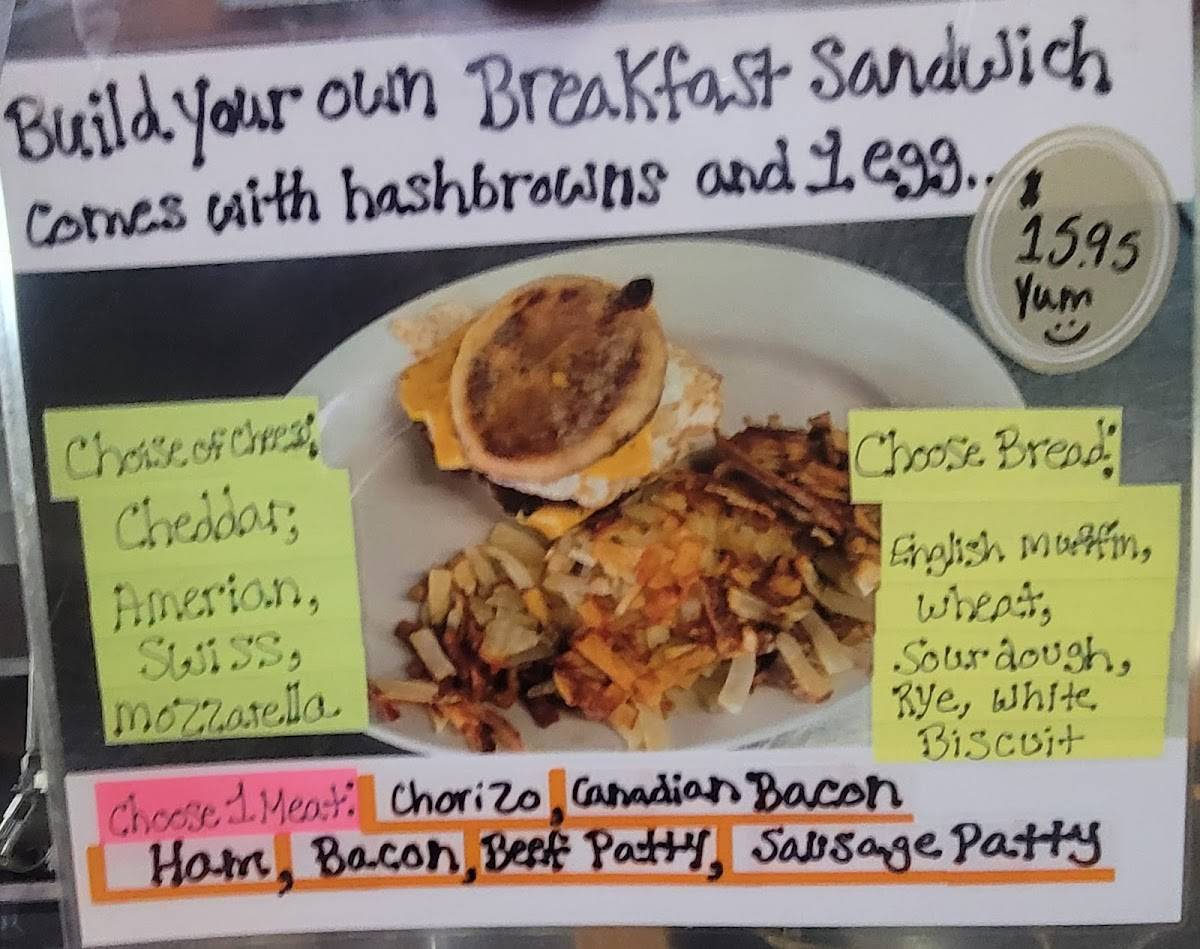 Build your own Breakfast Sandwich
comes with hashbrowns and 1 egg..
$
15.95
Yum
Choise of Cheese:
Cheddar,
Amerian,
Swiss,
mozzarella
Choose Bread:
English muffin,
wheat,
Sourdough,
Rye, white
Biscuit
Choose 1 Meat: Chorizo, Canadian Bacon
Ham, Bacon, Beef Patty, Sausage Patty